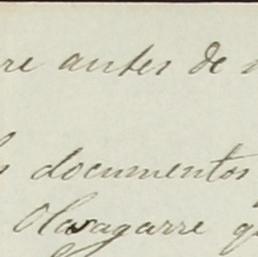 re antes de
documentos
Olasagarre q